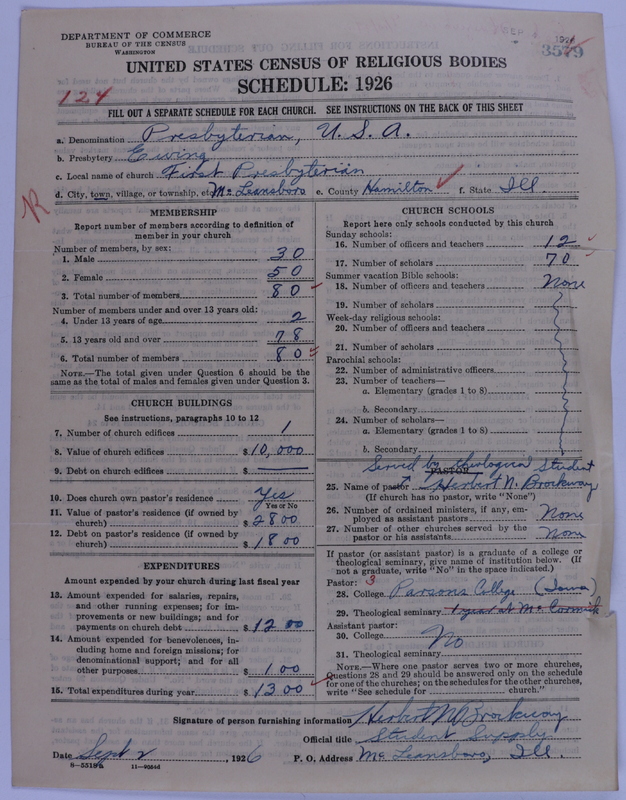 DEPARTMENT OF COMMERCE
BUREAU OF THE CENSUS
WASHINGTON
SEP 1926
3579
UNITED STATES CENSUS OF RELIGIOUS BODIES
SCHEDULE: 1926
124
FILL OUT A SEPARATE SCHEDULE FOR EACH CHURCH. SEE INSTRUCTIONS ON THE BACK OF THIS SHEET
a. Denomination Presbyterian, U.S.A.
b. Presbytery Ewing
c. Local name of church First Presbyterian
d. City, town, village, or township, etc. McLeansboro e. County Hamilton f. State Ill.
R
MEMBERSHIP
Report number of members according to definition of
member in your church
Number of members, by sex:
1. Male 30
2. Female 50
3. Total number of members 80
Number of members under and over 13 years old:
4. Under 13 years of age 2
5. 13 years old and over 78
6. Total number of members 80
NOTE.—The total given under Question 6 should be the
same as the total of males and females given under Question 3.
CHURCH BUILDINGS
See instructions, paragraphs 10 to 12
7. Number of church edifices 1
8. Value of church edifices $10,000
9. Debt on church edifices $
10. Does church own pastor's residence Yes
Yes or No
11. Value of pastor's residence (if owned by
church) $2800
12. Debt on pastor's residence (if owned by
church) $1800
EXPENDITURES
Amount expended by your church during last fiscal year
13. Amount expended for salaries, repairs,
and other running expenses; for im-
provements or new buildings; and for
payments on church debt $1200
14. Amount expended for benevolences, in-
cluding home and foreign missions; for
denominational support; and for all
other purposes $100
15. Total expenditures during year $1300
CHURCH SCHOOLS
Report here only schools conducted by this church
Sunday schools:
16. Number of officers and teachers 12
17. Number of scholars 70
Summer vacation Bible schools:
18. Number of officers and teachers None
19. Number of scholars
Week-day religious schools:
20. Number of officers and teachers
21. Number of scholars
Parochial schools:
22. Number of administrative officers
23. Number of teachers—
a. Elementary (grades 1 to 8)
b. Secondary
24. Number of scholars—
a. Elementary (grades 1 to 8)
b. Secondary
PASTOR
Served by theological student
25. Name of pastor Herbert N. Brockway
(If church has no pastor, write "None")
26. Number of ordained ministers, if any, em-
ployed as assistant pastors None
27. Number of other churches served by the
pastor or his assistants None
If pastor (or assistant pastor) is a graduate of a college or
theological seminary, give name of institution below. (If
not a graduate, write "No" in the space indicated.)
Pastor: 3
28. College Parsons College (Iowa)
29. Theological seminary 1 year at McCormick
Assistant pastor:
30. College No
31. Theological seminary
NOTE.—Where one pastor serves two or more churches,
Questions 28 and 29 should be answered only on the schedule
for one of the churches; on the schedules for the other churches,
write "See schedule for church."
Signature of person furnishing information Herbert N. Brockway
Official title Student Supply
Date Sept 2, 1926 P. O. Address McLeansboro, Ill.
8-5518a 11-9054d